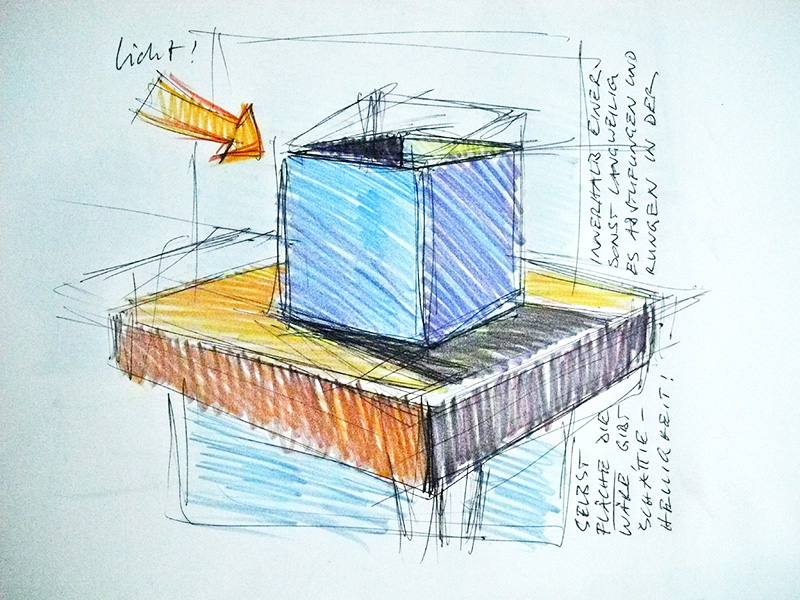 licht!
SELBST INNERHALB EINER,
FLÄCHE DIE SONST LANGWEILIG
WÄRE GIBT ES ABSTUFUNGEN UND
SCHATTIE- RUNGEN IN DER
HELLIGKEIT!